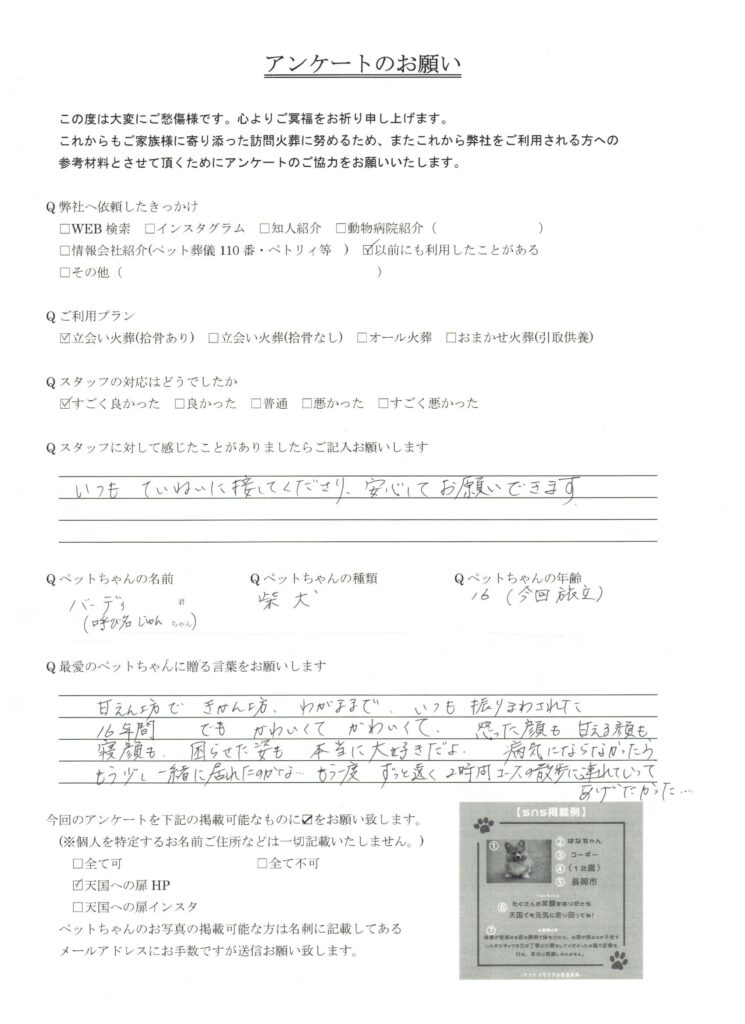 アンケートのお願い
この度は大変にご愁傷様です。心よりご冥福をお祈り申し上げます。
これからもご家族様に寄り添った訪問火葬に努めるため、またこれから弊社をご利用される方への
参考材料とさせて頂くためにアンケートのご協力をお願いいたします。
Q 弊社へ依頼したきっかけ
□WEB 検索 □インスタグラム □知人紹介 □動物病院紹介（ ）
□情報会社紹介(ペット葬儀 110 番・ペトリィ等 ) ☑以前にも利用したことがある
□その他（ ）
Q ご利用プラン
☑立会い火葬(拾骨あり) □立会い火葬(拾骨なし) □オール火葬 □おまかせ火葬(引取供養)
Q スタッフの対応はどうでしたか
☑すごく良かった □良かった □普通 □悪かった □すごく悪かった
Q スタッフに対して感じたことがありましたらご記入お願いします
いつも ていねいに接してくださり、安心してお願いできます
Q ペットちゃんの名前 Q ペットちゃんの種類 Q ペットちゃんの年齢
バーディ 君 柴犬 16 (今回旅立)
(呼び名じゅん ちゃん)
Q 最愛のペットちゃんに贈る言葉をお願いします
甘えん坊で きかん坊、わがままで、いつも 振りまわされた
16年間 でも かわいくて かわいくて、 怒った顔も 甘える顔も、
寝顔も、困らせた姿も 本当に大好きだよ. 病気にならなかったら
もう少し一緒に居れたのかな… もう一度 ずっと遠く 2時間コースの散歩に連れていって
あげたかった…
今回のアンケートを下記の掲載可能なものに☑をお願い致します。
(※個人を特定するお名前ご住所などは一切記載いたしません。)
□全て可 □全て不可
☑天国への扉 HP
□天国への扉インスタ
ペットちゃんのお写真の掲載可能な方は名刺に記載してある
メールアドレスにお手数ですが送信お願い致します。
【sns掲載例】
① ② はなちゃん
③ コーギー
④ (13歳)
⑤ 長岡市
⑥ たくさんの笑顔をありがとう
天国でも元気に走り回ってね!
⑦